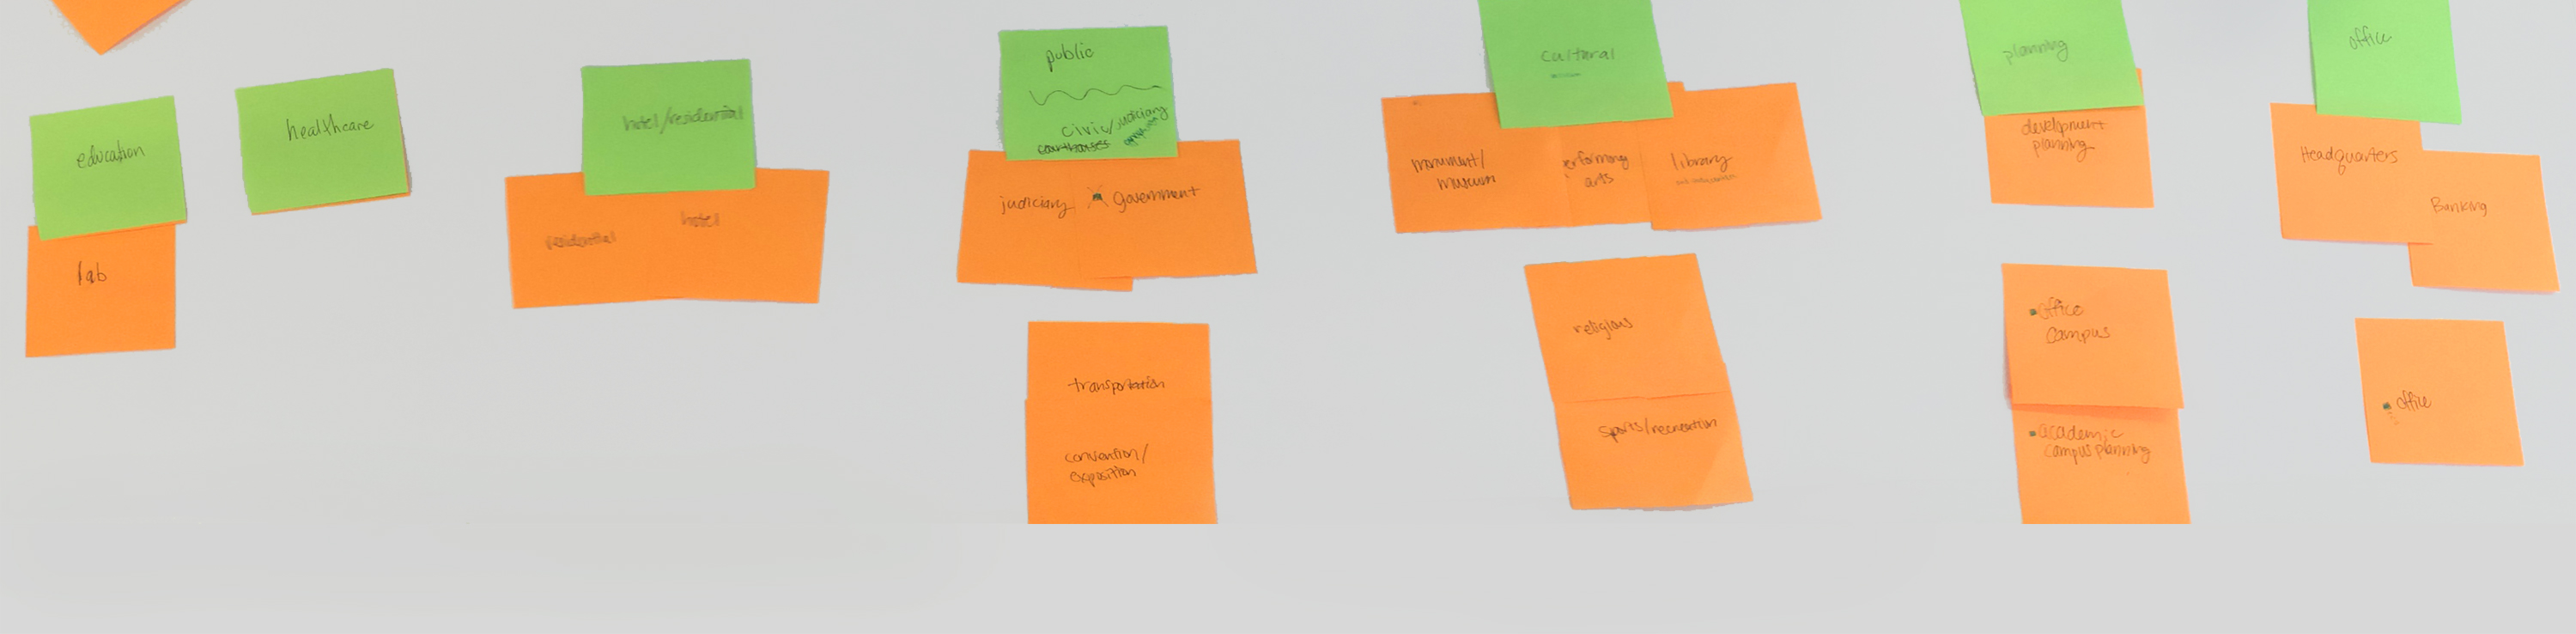 education
lab
healthcare
hotel/residential
residential
hotel
public
civic/judiciary
courthouses
judiciary
government
transportation
convention/
exposition
cultural
monument/
museum
erforming
arts
library
religious
sports/recreation
planning
development
planning
office
campus
academic
campus planning
office
Headquarters
Banking
office